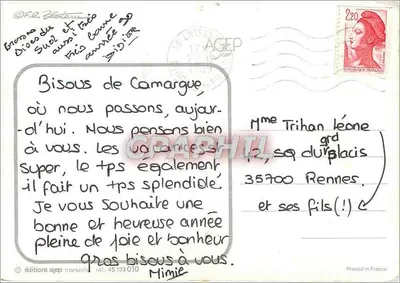 Grosses
Bises du
Sud et
aussi très
bonne
année 90
DIDIER
AGEP
2,20
Bisous de Camargue,
où nous passons, aujour-
d'hui. Nous pensons bien
à vous. Les vacances st
super, le tps également,
il fait un tps splendide.
Je vous souhaite une
bonne et heureuse année
pleine de joie et bonheur
gros bisous à vous.
Mimie
Mme Trihan Léone
12, sq du grd placis
35700 Rennes.
et ses fils(!)
© éditions agep marseille réf. 45 133 010
Printed in France